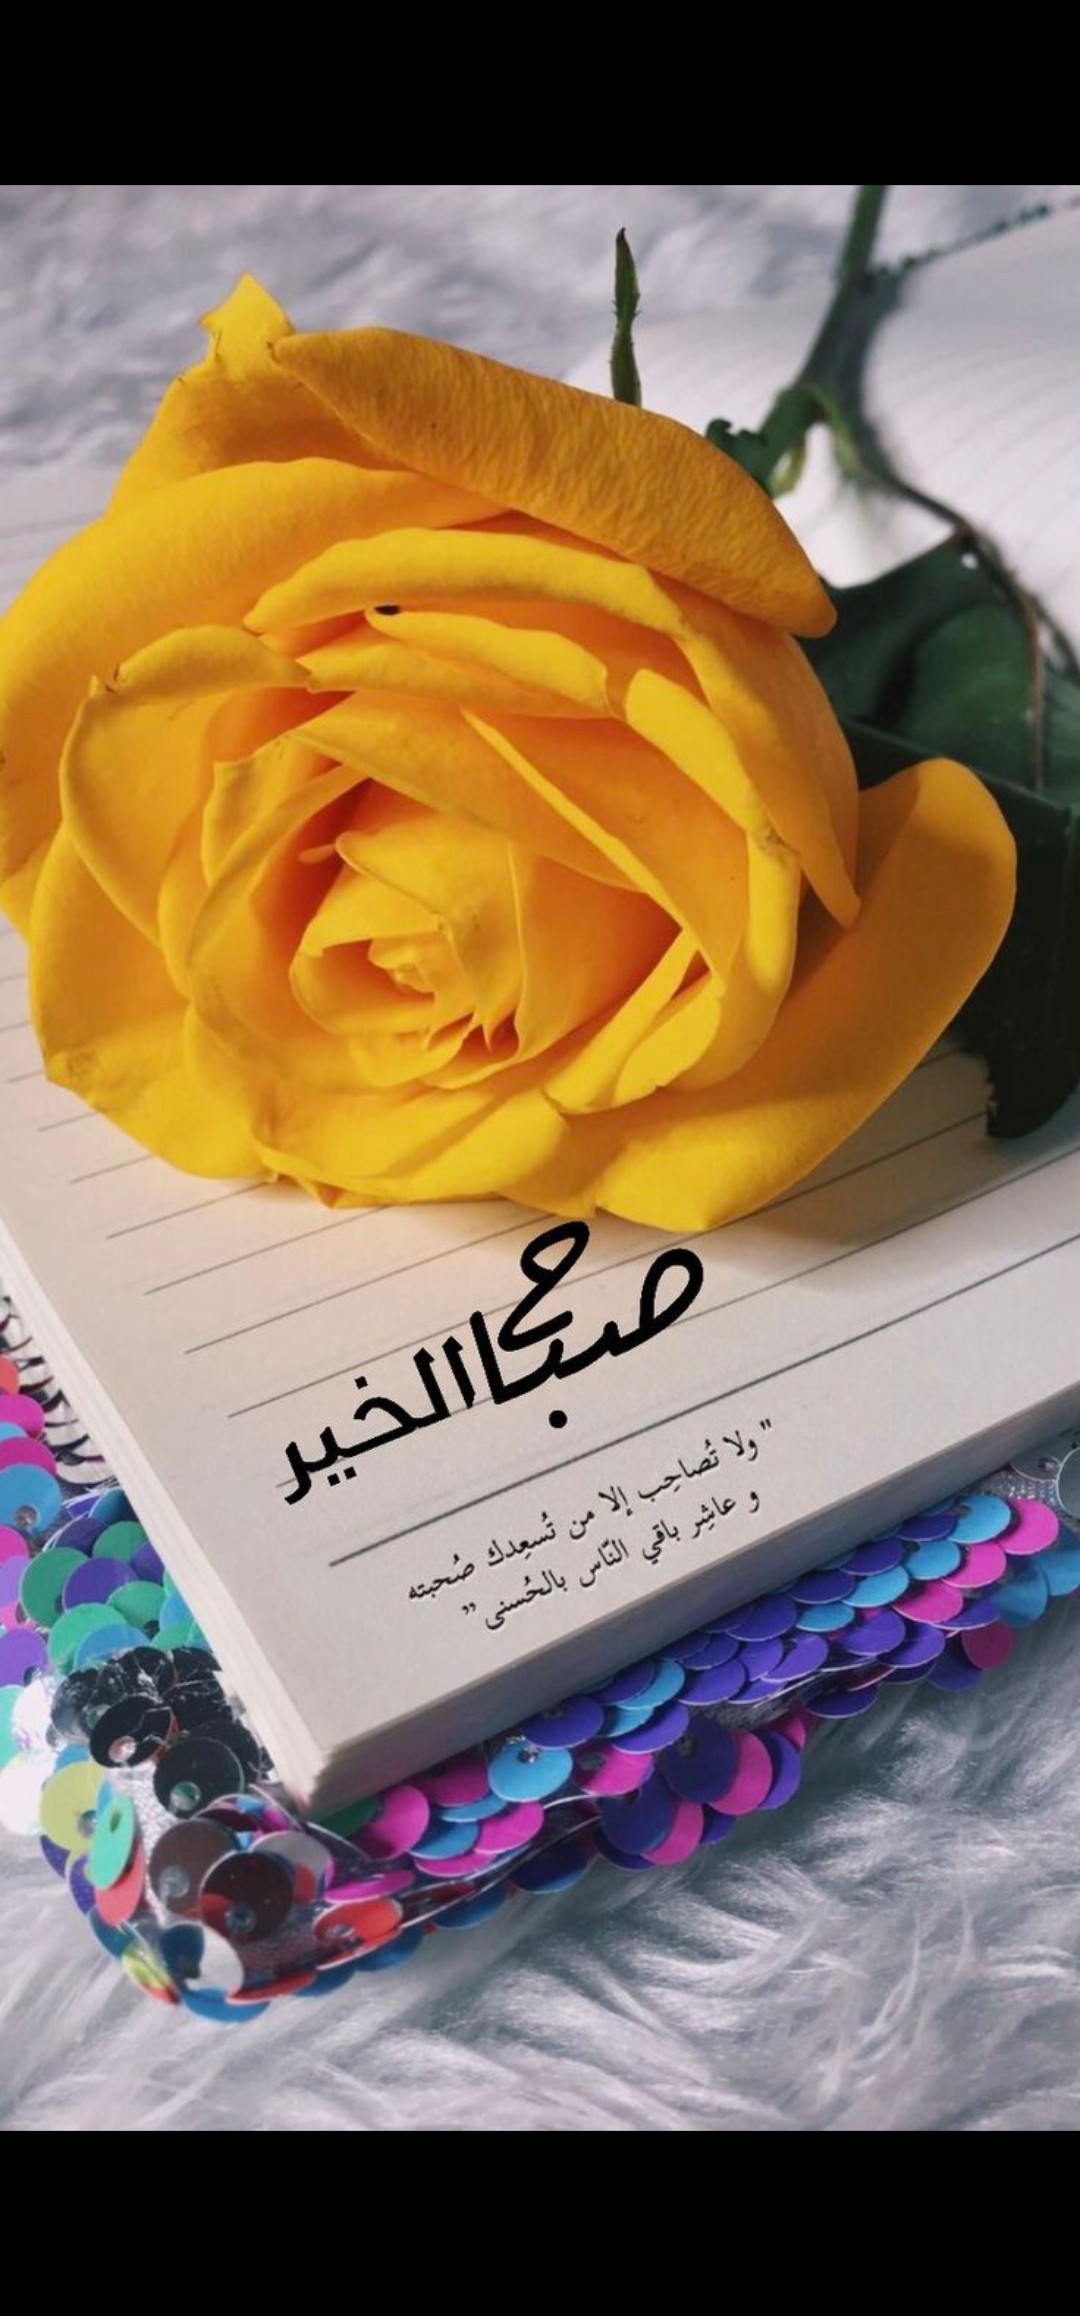 صباح الخير
" ولا تُصاحِب إلا من تُسعِدك صُحبته
و عاشِر باقي النّاس بالحُسنى "